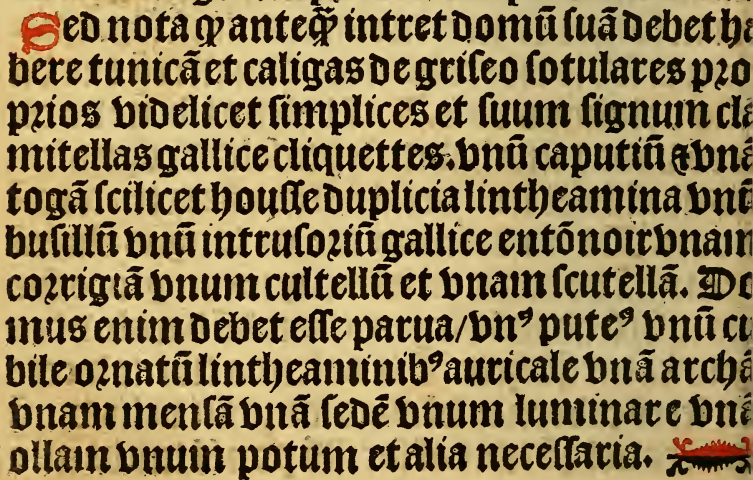 Sed nota ꝙ anteꝙ̄ intret domū suā debet h
bere tunicā et caligas de griseo sotulares pro
prios videlicet simplices et suum signum cla
mitellas gallice cliquettes. vnū caputiū ⁊ vnā
togā scilicet housse duplicia lintheamina vnū
busillū vnū intrusoriū gallice entōnoir vnam
corrigiā vnum cultellū et vnam scutellā. Do
mus enim debet esse parua/ vnꝰ puteꝰ vnū cu
bile ornatū lintheaminibꝰ auricale vnā archā
vnam mensā vnā sedē vnum luminare vnā
ollam vnum potum et alia necessaria.